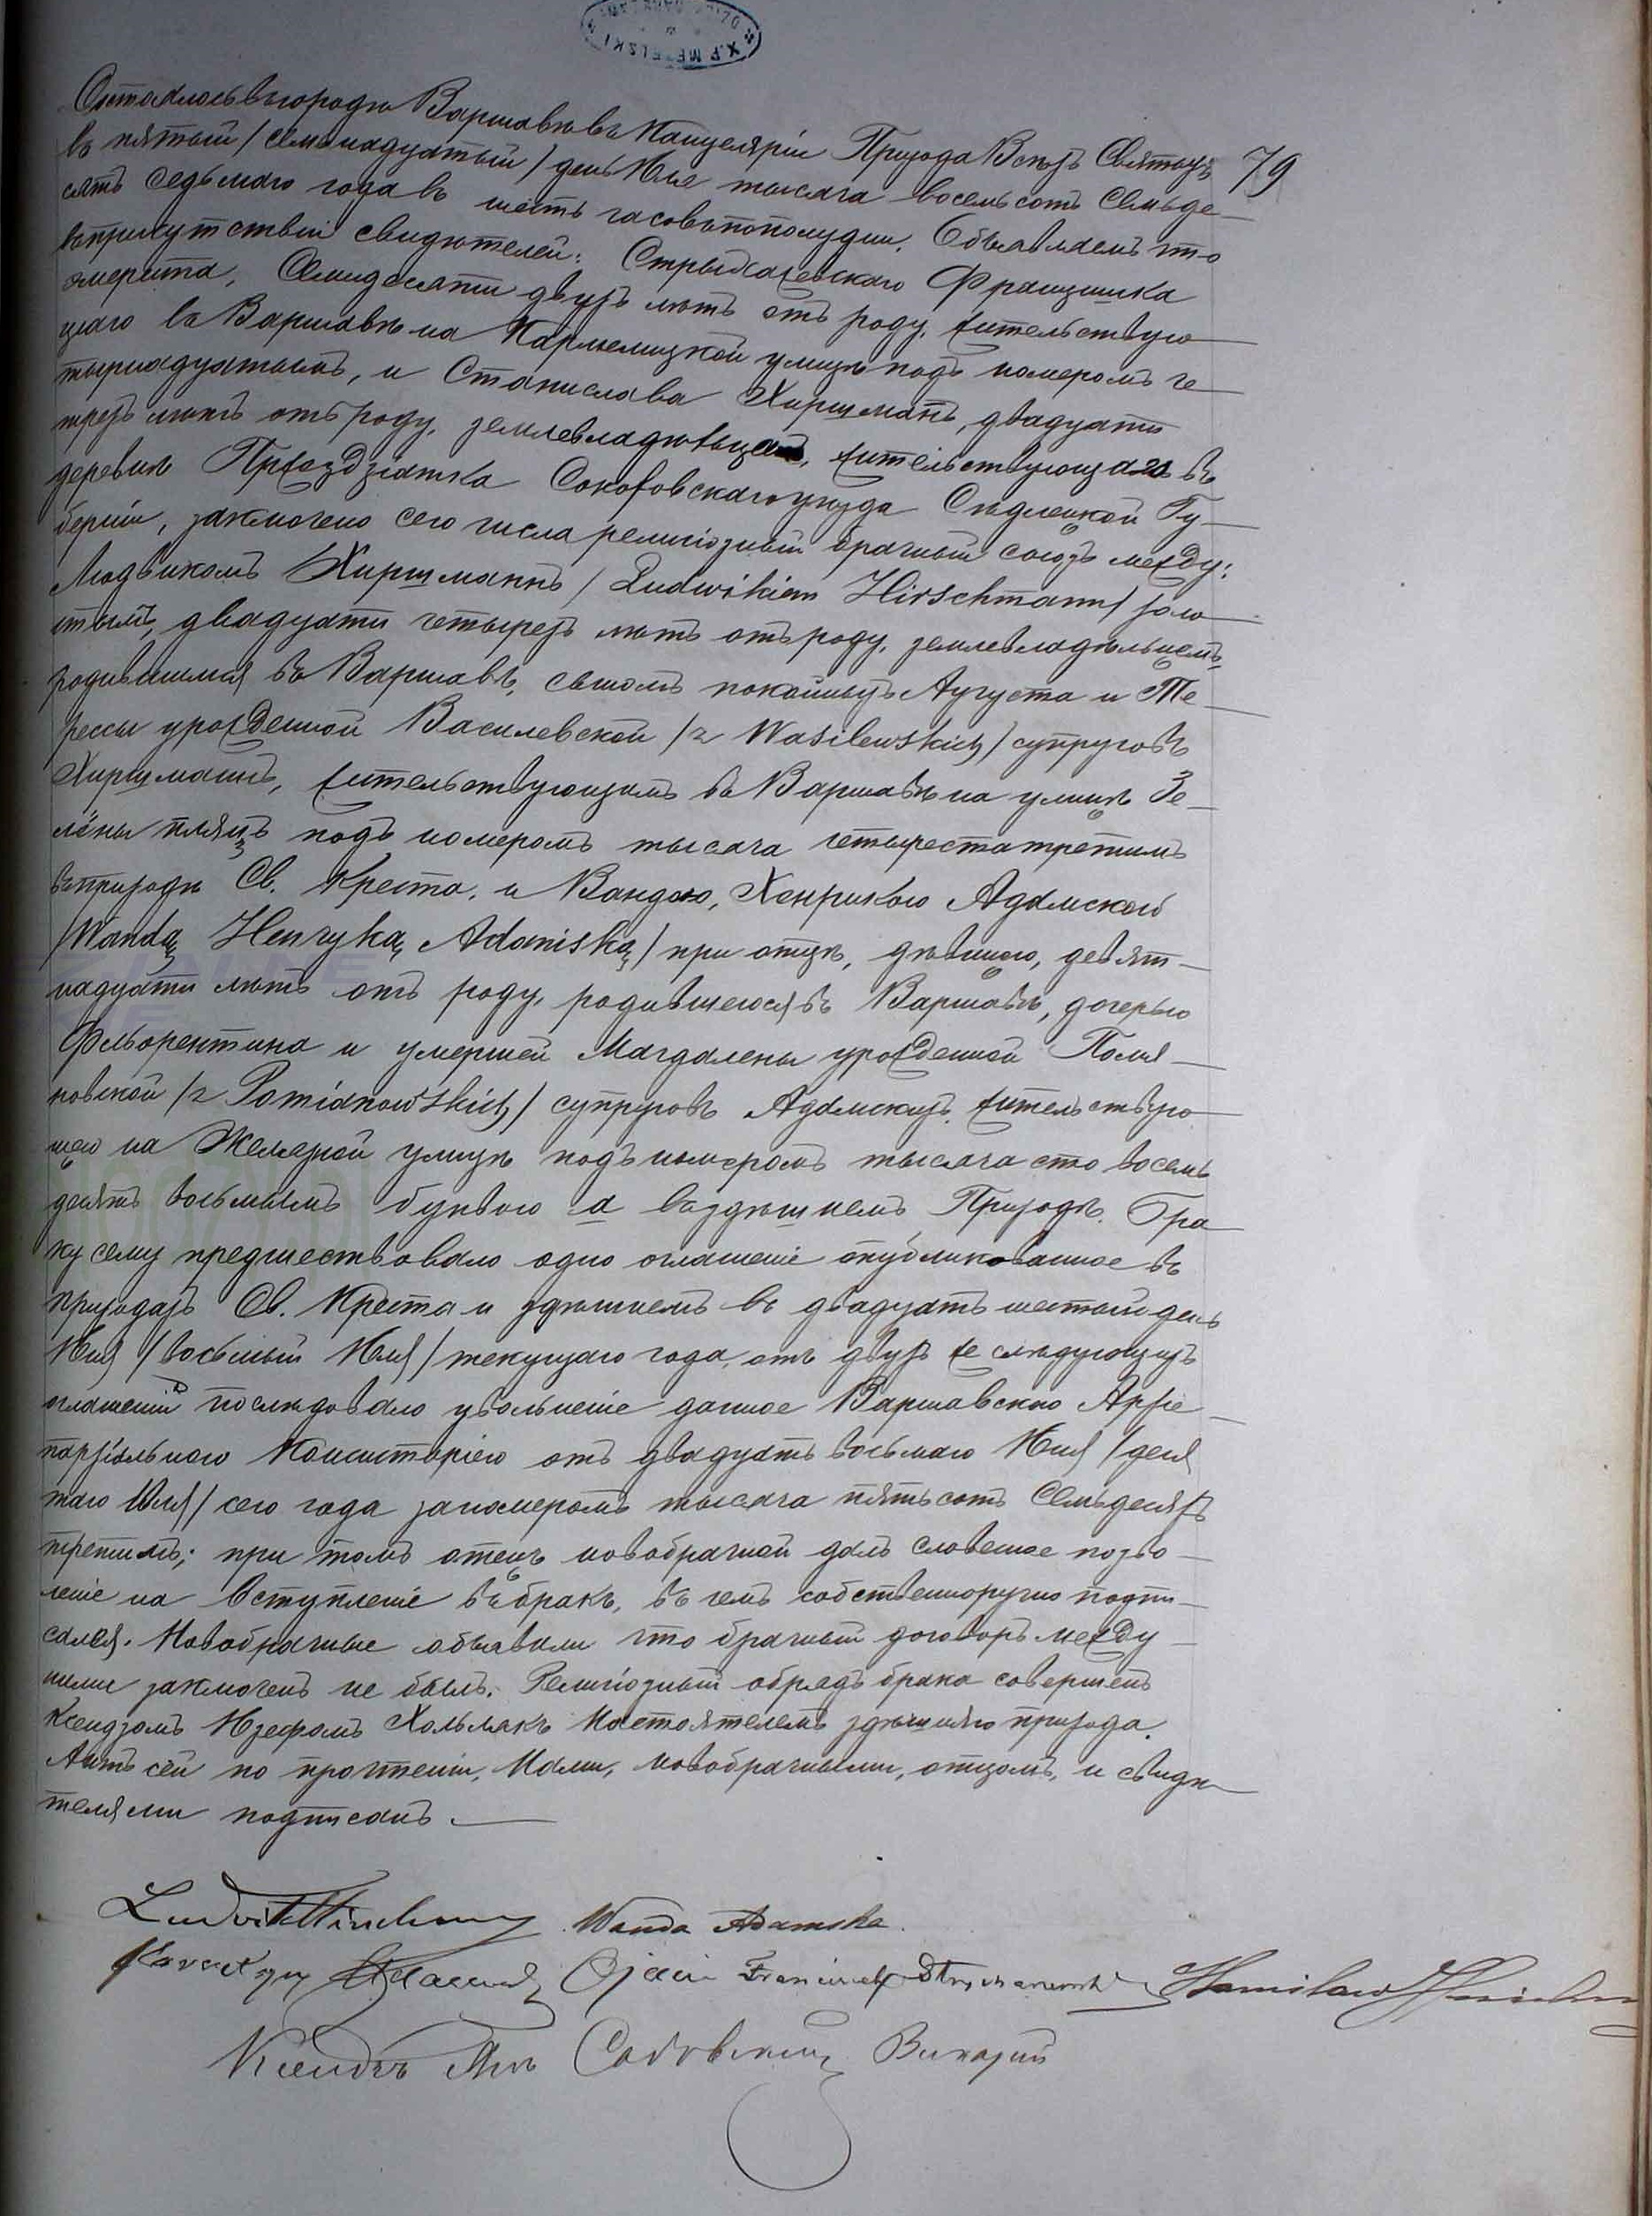 79
Состоялось въ городѣ Варшавѣ въ Канцеляріи Прихода Всѣхъ Святыхъ
въ пятый /семьнадцатый/ день Іюля тысяча восемьсотъ семьде-
сятъ седьмаго года въ шесть часовъ пополудни. Объявляемъ что
въ присутствіи свидѣтелей: Стрыхаржевскаго Францишка
эмерита, двухъ лѣтъ отъ роду, жительствую-
щаго въ Варшавѣ на Кармелицкой улицѣ подъ номеромъ че-
тырнадцатымъ, и Станислава Хиршманъ, двадцати
трехъ лѣтъ отъ роду, жительствующаго въ
деревнѣ Соколовскаго уѣзда Сѣдлецкой Гу-
берніи, заключено сего числа религіозный брачный союзъ между:
Людвикомъ Хиршманнъ /Ludwikiem Hirschmann/ холо-
стымъ, двадцати четырехъ лѣтъ отъ роду, землевладѣльцемъ,
родившимся въ Варшавѣ, сыномъ покойныхъ Августа и Те-
рессы урожденной Василевской /z Wasilewskich/ супруговъ
Хиршманъ, жительствующимъ въ Варшавѣ на улицѣ Зе-
лёны пляцъ подъ номеромъ тысяча четыреста третимъ
въ приходѣ Св. Креста, и Вандою, Хенрикою Адамской
/Wandą Henryką Adamską/ при отцѣ, дѣвицею, девят-
надцати лѣтъ отъ роду, родившеюся въ Варшавѣ, дочерью
Фльорентина и умершей Магдалены урожденной Помя-
новской /z Pomianowskich/ супруговъ Адамскихъ, жительствую-
щею на Желязной улицѣ подъ номеромъ тысяча сто восемь
десятъ восьмымъ буквою а въ здѣшнемъ Приходѣ. Бра-
ку сему предшествовало одно оглашеніе опубликованное въ
приходахъ Св. Креста и здѣшнемъ въ двадцать шестый день
Іюня /восьмый Іюля/ текущаго года, отъ двухъ же слѣдующихъ
оглашеній послѣдовало увольненіе данное Варшавскою Архіе-
пархіальною Консисторіею отъ двадцать восьмаго Іюня /деся
таго Іюля/ сего года за номеромъ тысяча пятьсотъ семьдесятъ
третимъ; при томъ отецъ новобрачной далъ словесное позво-
леніе на вступленіе въ бракъ, въ чемъ собственноручно подпи-
сался. Новобрачные объявили что брачный договоръ между
ними заключенъ не былъ. Религіозный обрядъ брака совершенъ
Ксендзомъ Іозефомъ Хольлакъ Настоятелемъ здѣшняго прихода.
Актъ сей по прочтеніи, Нами, новобрачными, отцомъ, и свидѣ-
телями подписанъ.
Ludwik Hirschmann Wanda Adamska
Ojciec Franciszek Stanisław
Ксендзъ Викарій